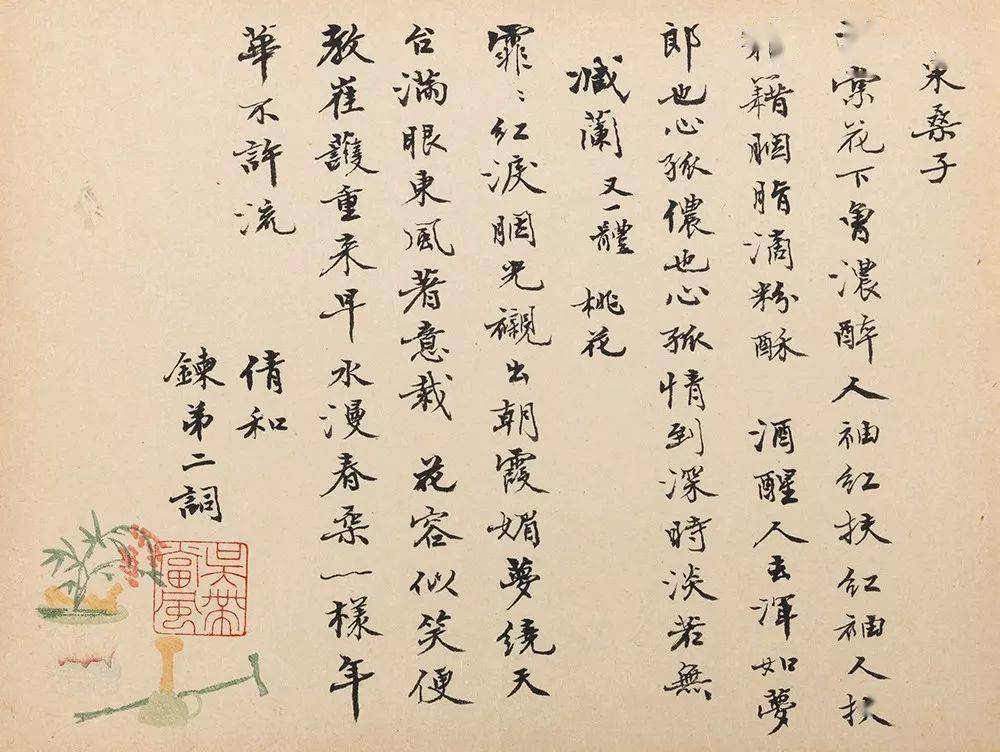 采桑子
棠花下曾濃醉人袖紅扶紅袖人扶
籍胭脂滴粉酥 酒醒人去渾如夢
郎也心孤儂也心孤情到深時淡若無
減蘭 又一體 桃花
霏〻紅淚胭光襯出朝霞媚夢繞天
台滿眼東風著意栽 花容似笑便
教崔護重来早水漫春柔一樣年
華不許流
倩和
鍊弟二詞
吳帶當風